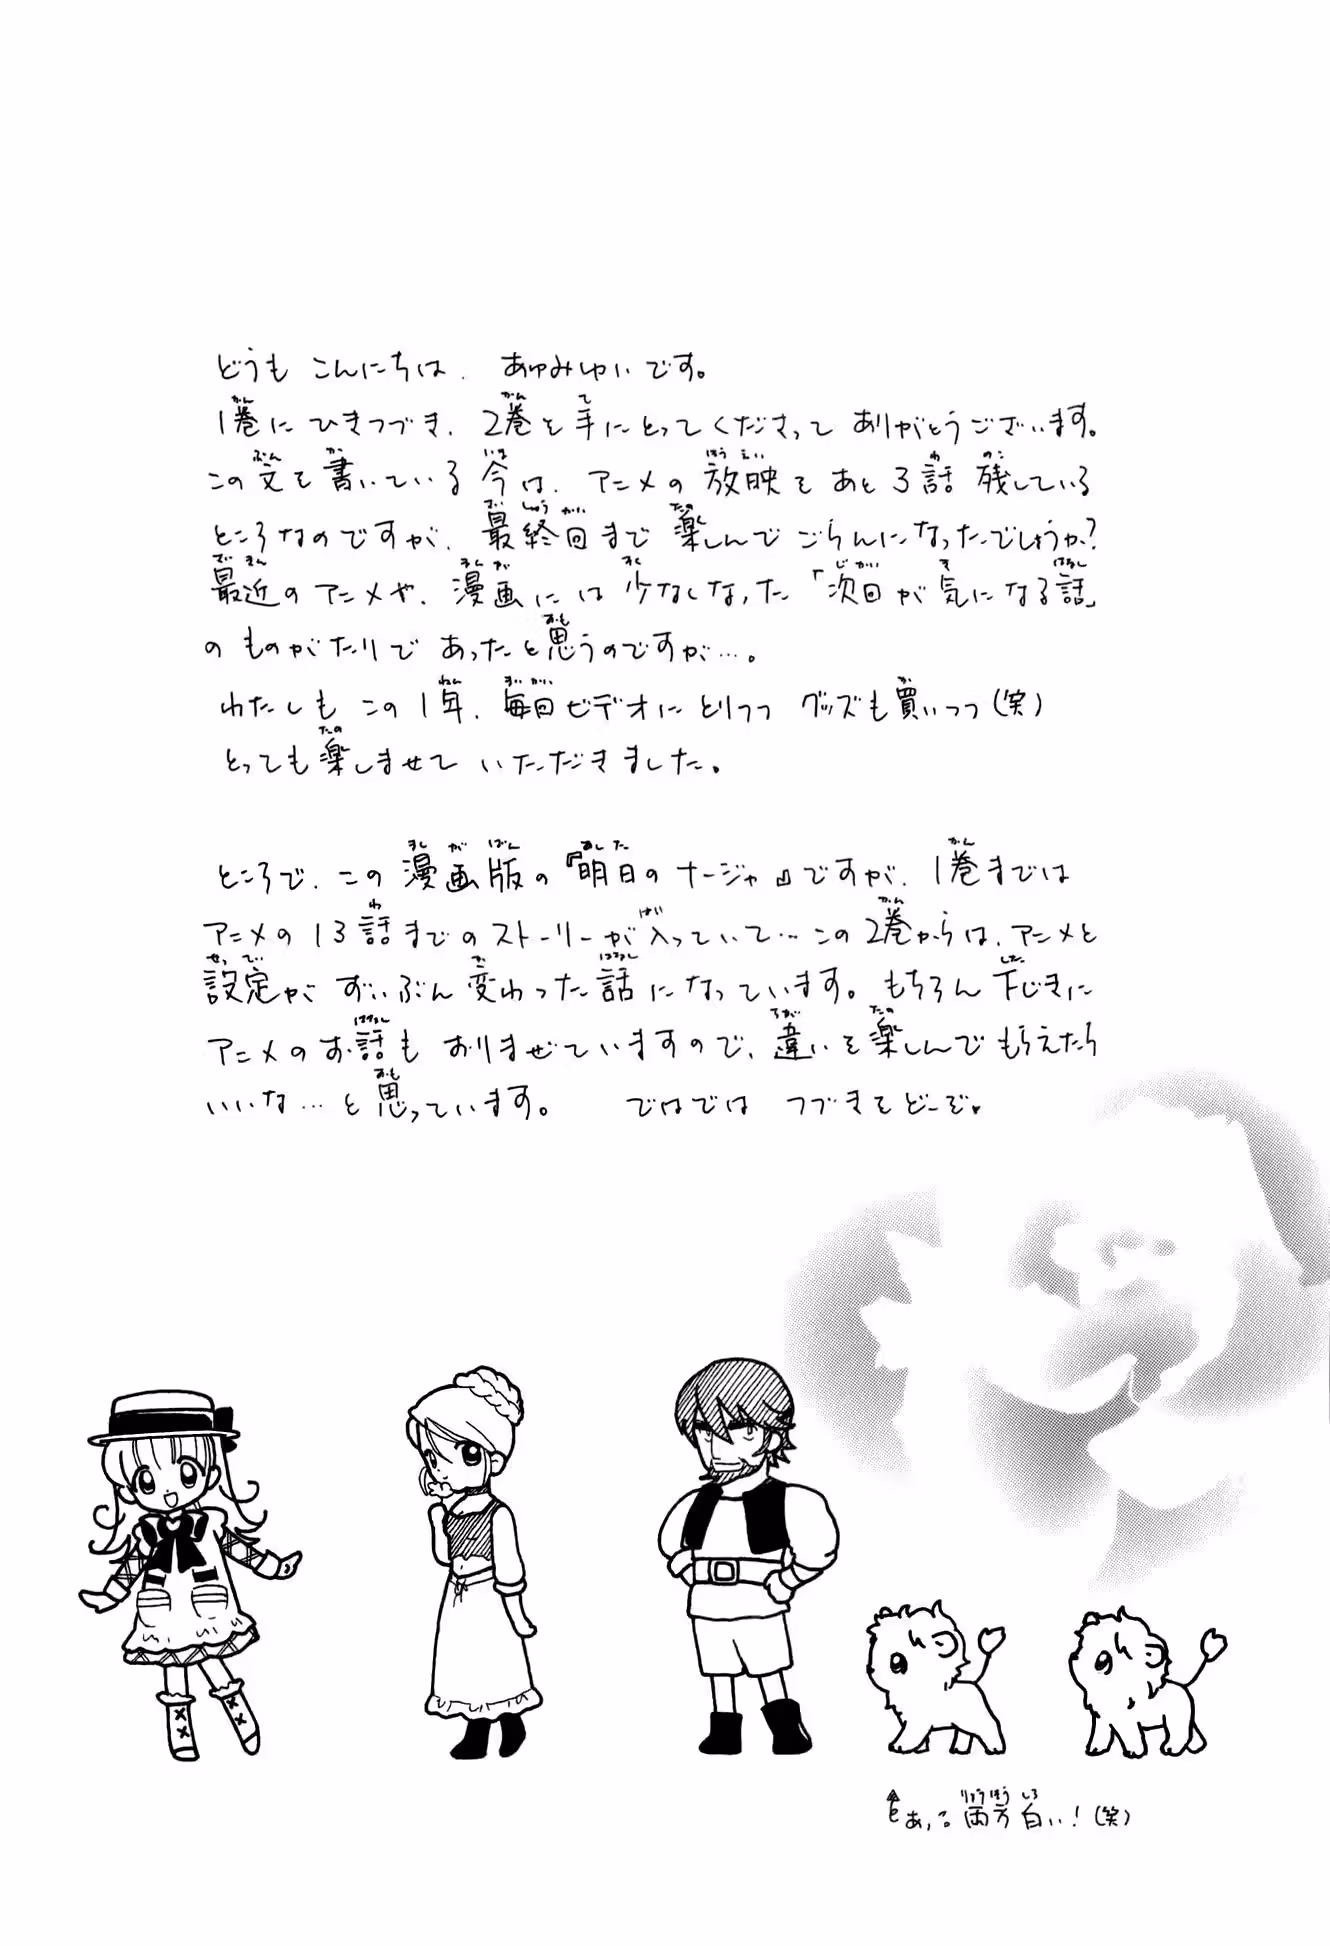 どうも こんにちは、あゆみゆいです。
1巻にひきつづき、2巻を手にとってくださって ありがとうございます。
この文を書いている今は、アニメの放映をあと3話 残している
ところなのですが、最終回まで楽しんでごらんになったでしょうか?
最近のアニメや、漫画には少なくなった「次回が気になる話」
のものがたりであったと思うのですが…。
わたしもこの1年、毎回ビデオにとりつつ グッズも買いつつ(笑)
とっても楽しませて いただきました。
ところで、この漫画版の『明日のナージャ』ですが、1巻までは
アニメの13話までのストーリーが入っていて…この2巻からは、アニメと
設定が ずいぶん変わった話になっています。もちろん下じきに
アニメのお話も おりまぜていますので、違いを楽しんでもらえたら
いいな…と思っています。 ではでは つづきをどーぞ♥
あっ。両方白い!(笑)